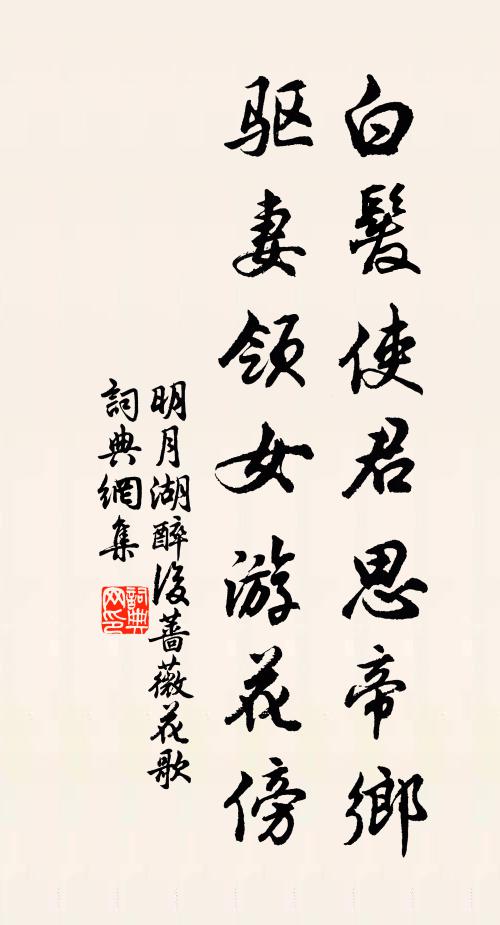 白髮使君思帝鄉
驱妻領女游花傍
明月湖醉後薔薇花歌
詞典網集
詞典网印